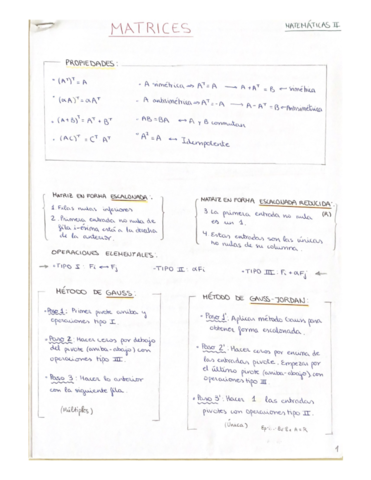 MATRICES
MATEMÁTICAS II
PROPIEDADES:
- (Aᵗ)ᵗ = A
- (αA)ᵗ = αAᵗ
- (A+B)ᵗ = Aᵗ + Bᵗ
- (AC)ᵗ = Cᵗ Aᵗ
- A simétrica ⇒ Aᵗ = A → A + Aᵗ = B ← simétrica
- A antisimétrica Aᵗ = -A → A - Aᵗ = B ← Antisimétrica
- AB = BA ↔ A y B conmutan
- A² = A ↔ Idempotente
MATRIZ EN FORMA ESCALONADA:
1. Filas nulas inferiores
2. Primera entrada no nula de
fila i-ésima está a la derecha
de la anterior.
MATRIZ EN FORMA ESCALONADA REDUCIDA:
3. La primera entrada no nula (R)
es un 1.
4. Estas entradas son las únicas
no nulas de su columna.
OPERACIONES ELEMENTALES:
→ -TIPO I: Fi ↔ Fj -TIPO II: αFi -TIPO III: Fi + αFj ←
MÉTODO DE GAUSS:
- Paso 1: Primer pivote arriba y
operaciones tipo I
- Paso 2: Haces ceros por debajo
del pivote (arriba-abajo) con
operaciones tipo III
- Paso 3: Haces lo anterior
con la siguiente fila.
(Múltiples)
MÉTODO DE GAUSS-JORDAN:
- Paso 1': Aplicar método Gauss para
obtener forma escalonada.
- Paso 2': Haces ceros por encima de
las entradas pivote. Empezar por
el último pivote (abajo-arriba) con
operaciones tipo III
- Paso 3': Haces 1 las entradas
pivotes con operaciones tipo II
(Único)
1